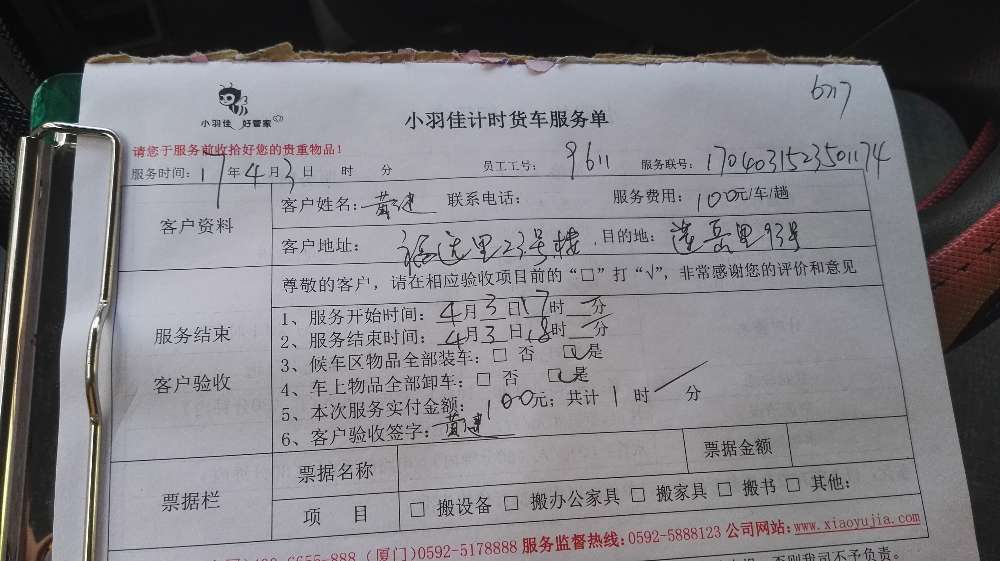 6117
小羽佳 好管家
小羽佳计时货车服务单
请您于服务前收拾好您的贵重物品！
服务时间：17年4月3日 时 分 员工工号： 9611 服务联号：1704031523501174
客户资料
客户姓名：黄建 联系电话： 服务费用：100元/车/趟
客户地址： 福选里23号楼，目的地：莲岳里93号
服务结束
客户验收
尊敬的客户，请在相应验收项目前的“□”打“√”，非常感谢您的评价和意见
1、服务开始时间：4月3日17时 分
2、服务结束时间：4月3日18时 分
3、候车区物品全部装车：□ 否 ☑是
4、车上物品全部卸车：□ 否 ☑是
5、本次服务实付金额：100元；共计1时 分
6、客户验收签字：黄建
票据栏
票据名称 票据金额
项 目 □ 搬设备 □ 搬办公家具 □ 搬家具 □ 搬书 □ 其他：
-6655-888 (厦门)0592-5178888 服务监督热线：0592-5888123 公司网站：www.xiaoyujia.com
否则我司不予负责。